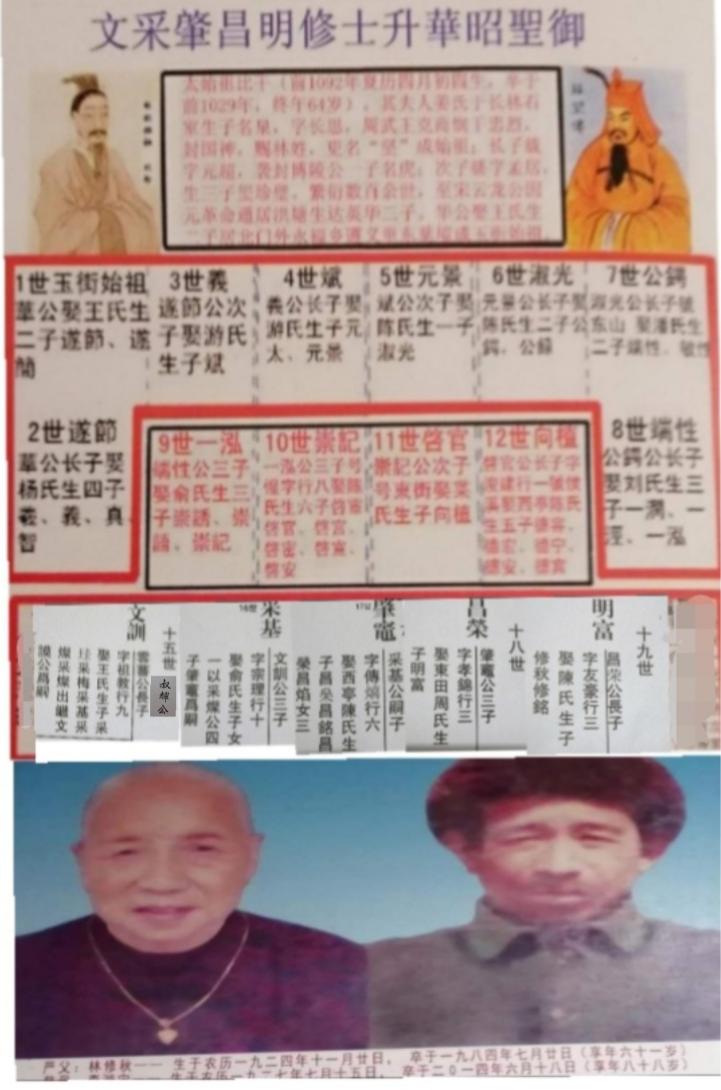 文采肇昌明修士升華昭聖御
太始祖比干（前1092年夏历四月初四生，卒于
前1029年，终年64岁），其夫人妫氏于长林石
室生子名泉，字长思，周武王克商悯丁忠烈，
封国神，赐林姓，更名“坚”成始祖；长子
字元超，袭封博陵公一子名虎；次子
生三子
1世玉街始祖
華公娶王氏生
二子遂節、遂
簡
3世義
遂節公次
子娶游氏
生子斌
4世斌
義公长子娶
游氏生子元
太、元景
5世元景
斌公次子娶
陈氏生一子
淑光
6世淑光
元景公长子娶
陈氏生二子公
鍔、公錄
7世公鍔
淑光公长子號
东山 娶潘氏生
二子端性、敏性
2世遂節
華公长子娶
杨氏生四子
羲、義、真、
智
9世一泓
端性公三子
娶俞氏生三
子崇誘、崇
語、崇記
10世崇記
一泓公三子号
惺字行八娶陈
氏生六子啓
啓官、啓
啓密、啓宣、
啓安
11世啓官
崇記公次子
号東街娶葉
氏生子向植
12世向植
啓官公长子字
建行一號懷
娶西亭陈氏
生五子德容、
德宏、德宁、
德安、德賓
8世端性
公鍔公长子
娶刘氏生三
子一澗、一
涇、一泓
十九世
明富
昌榮公長子
字友豪行三
娶陳氏生子
修秋修銘
十八世
昌榮
肇竈公三子
字孝錦行三
娶東田周氏生
子明富
17世
肇竈
采基公嗣子
字傳炳行六
娶西亭陳氏生
子昌炅昌銘昌
榮昌焰女三
16世
采基
文訓公三子
字宗理行十
娶俞氏生子女
一以采燦公四
子肇竈爲嗣
十五世
叔樺公
文訓
雲蕃公長子
字祖教行九
娶王氏生子采
珪采梅采基采
燦采燦出繼文
謨公爲嗣
严父：林修秋—— 生于农历一九二四年十一月廿日， 卒于一九八四年七月廿日（享年六十一岁）
生于农历一九二七年七月十五日， 卒于二0一四年六月十八日（享年八十八岁）